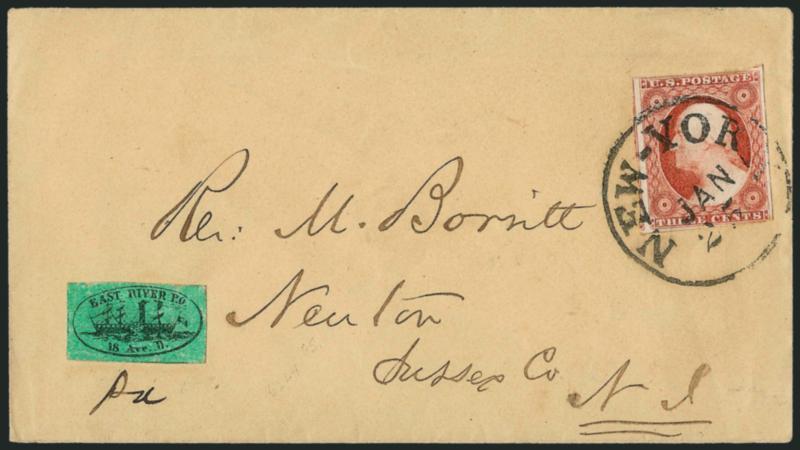 U.S. POSTAGE
THREE CENTS
NEW-YOR
JAN
Rev: M. Borritt
Newton
Sussex Co
N J
EAST RIVER P.O.
18 Ave. D.
Pd